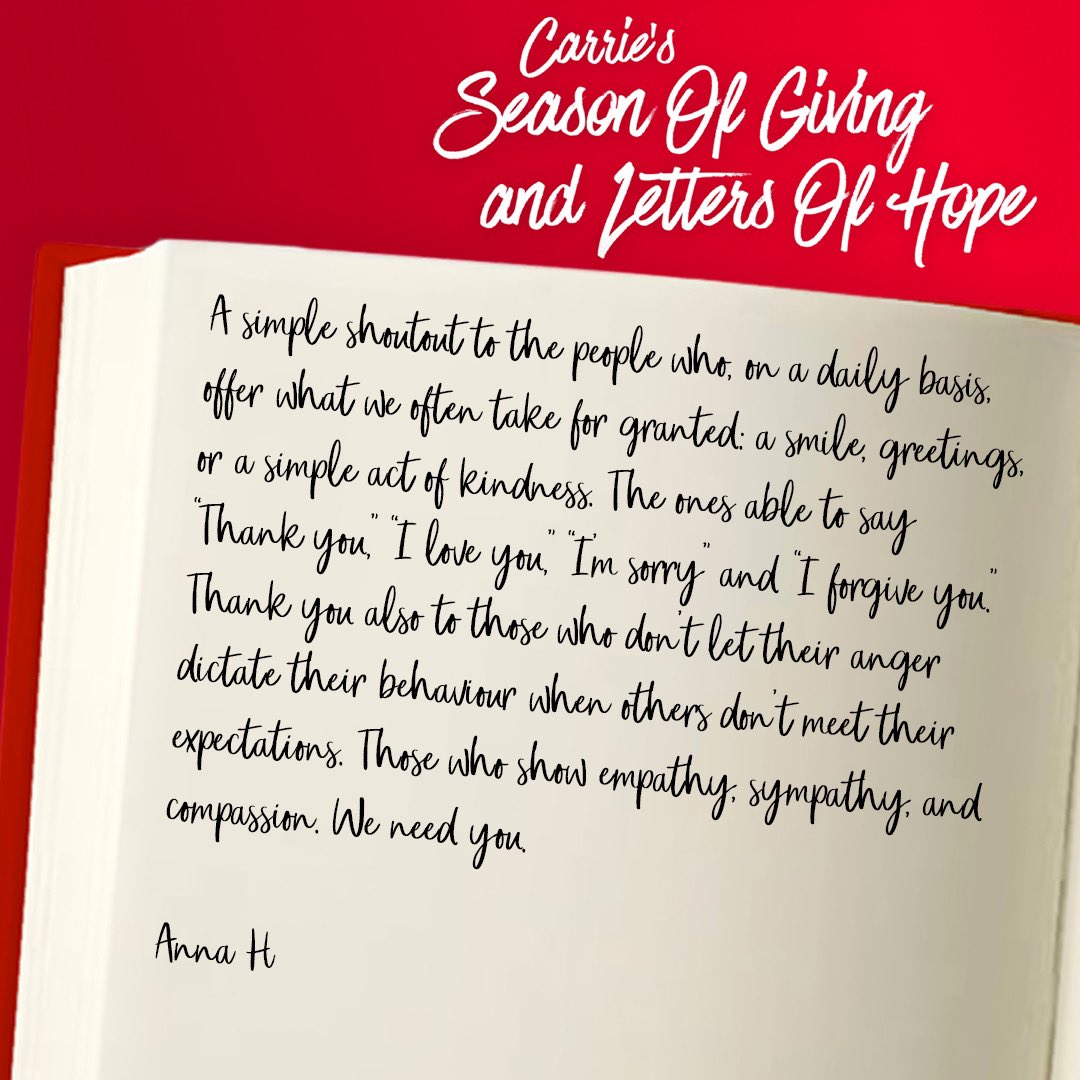 Carrie's
Season Of Giving
and Letters Of Hope
A simple shoutout to the people who, on a daily basis,
offer what we often take for granted: a smile, greetings,
or a simple act of kindness. The ones able to say
“Thank you,” “I love you,” “I'm sorry” and “I forgive you.”
Thank you also to those who don't let their anger
dictate their behaviour when others don't meet their
expectations. Those who show empathy, sympathy, and
compassion. We need you.
Anna H